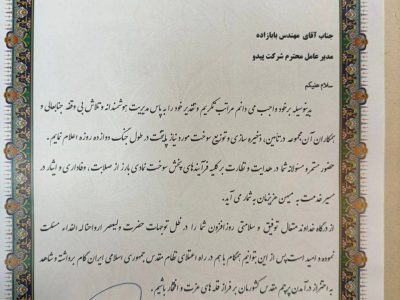 جناب آقای مهندس بابازاده
مدیر عامل محترم شرکت پیدو
سلام علیکم
بدینوسیله بر خود واجب می دانم مراتب تکریم و تقدیر خود را به پاس مدیریت هوشمندانه و تلاش بی وقفه جنابعالی و
همکاران آن مجموعه در تامین، ذخیره سازی و توزیع سوخت مورد نیاز پایتخت در طول جنگ دوازده روزه اعلام نمایم.
حضور مستمر و مسئولانه شما در هدایت و نظارت بر کلیه فرآیندهای پخش سوخت نمادی بارز از صلابت، وفاداری و ایثار در
مسیر خدمت به میهن عزیزمان به شمار می آید.
از درگاه خداوند متعال توفیق و سلامتی روزافزون شما را در ظل توجهات حضرت ولیعصر ارواحنا له الفداء، مسئلت
نموده و امید است پس از این بتوانیم همگام با هم در راه اعتلای نظام مقدس جمهوری اسلامی ایران گام برداشته و شاهد
به اهتزاز درآمدن پرچم مقدس کشورمان بر فراز قله های عزت و افتخار باشیم.